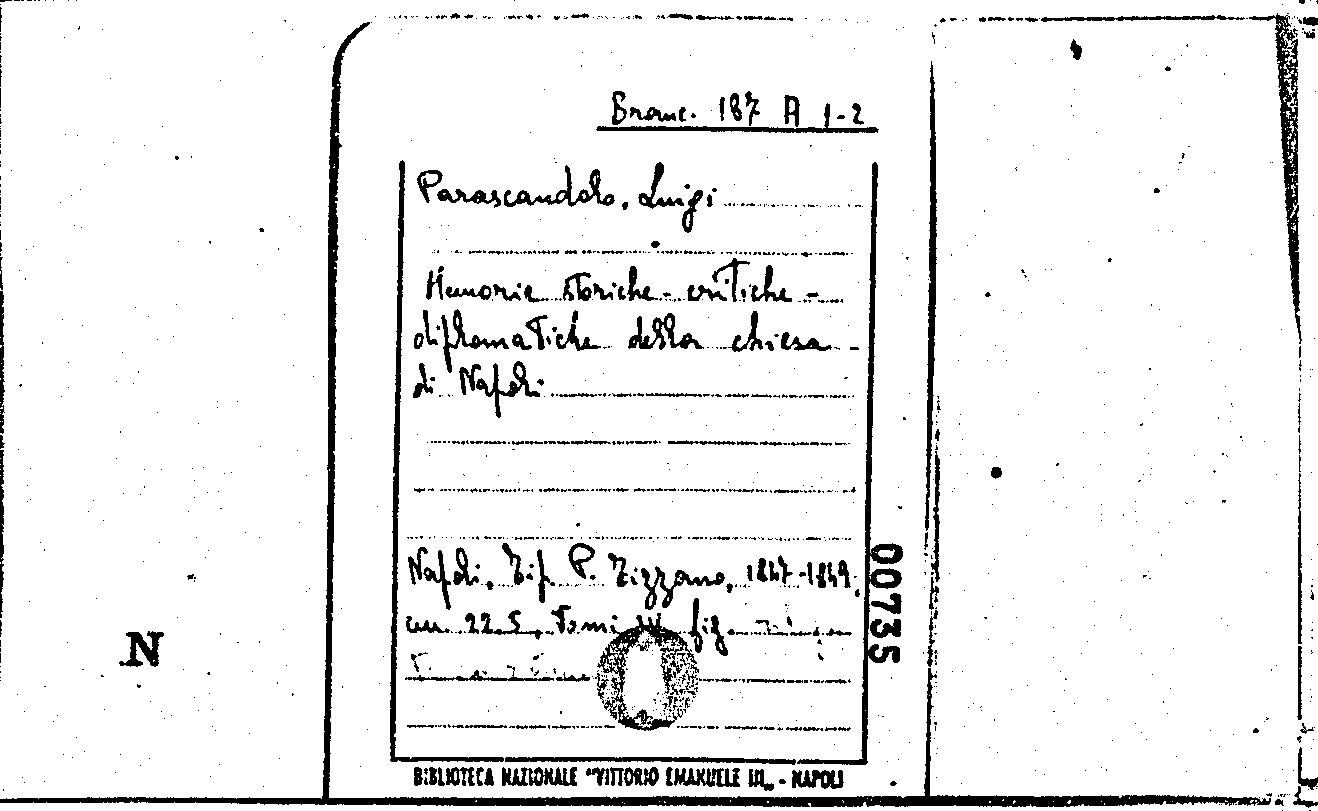 Branc. 187 A 1-2
Parascandolo, Luigi
Memorie storiche-critiche-
diplomatiche della chiesa
di Napoli
Napoli, Tip. P. Tizzano, 1847-1849.
cm. 22.5, Tomi fig.
00735
N
BIBLIOTECA NAZIONALE "VITTORIO EMANUELE III„ - NAPOLI